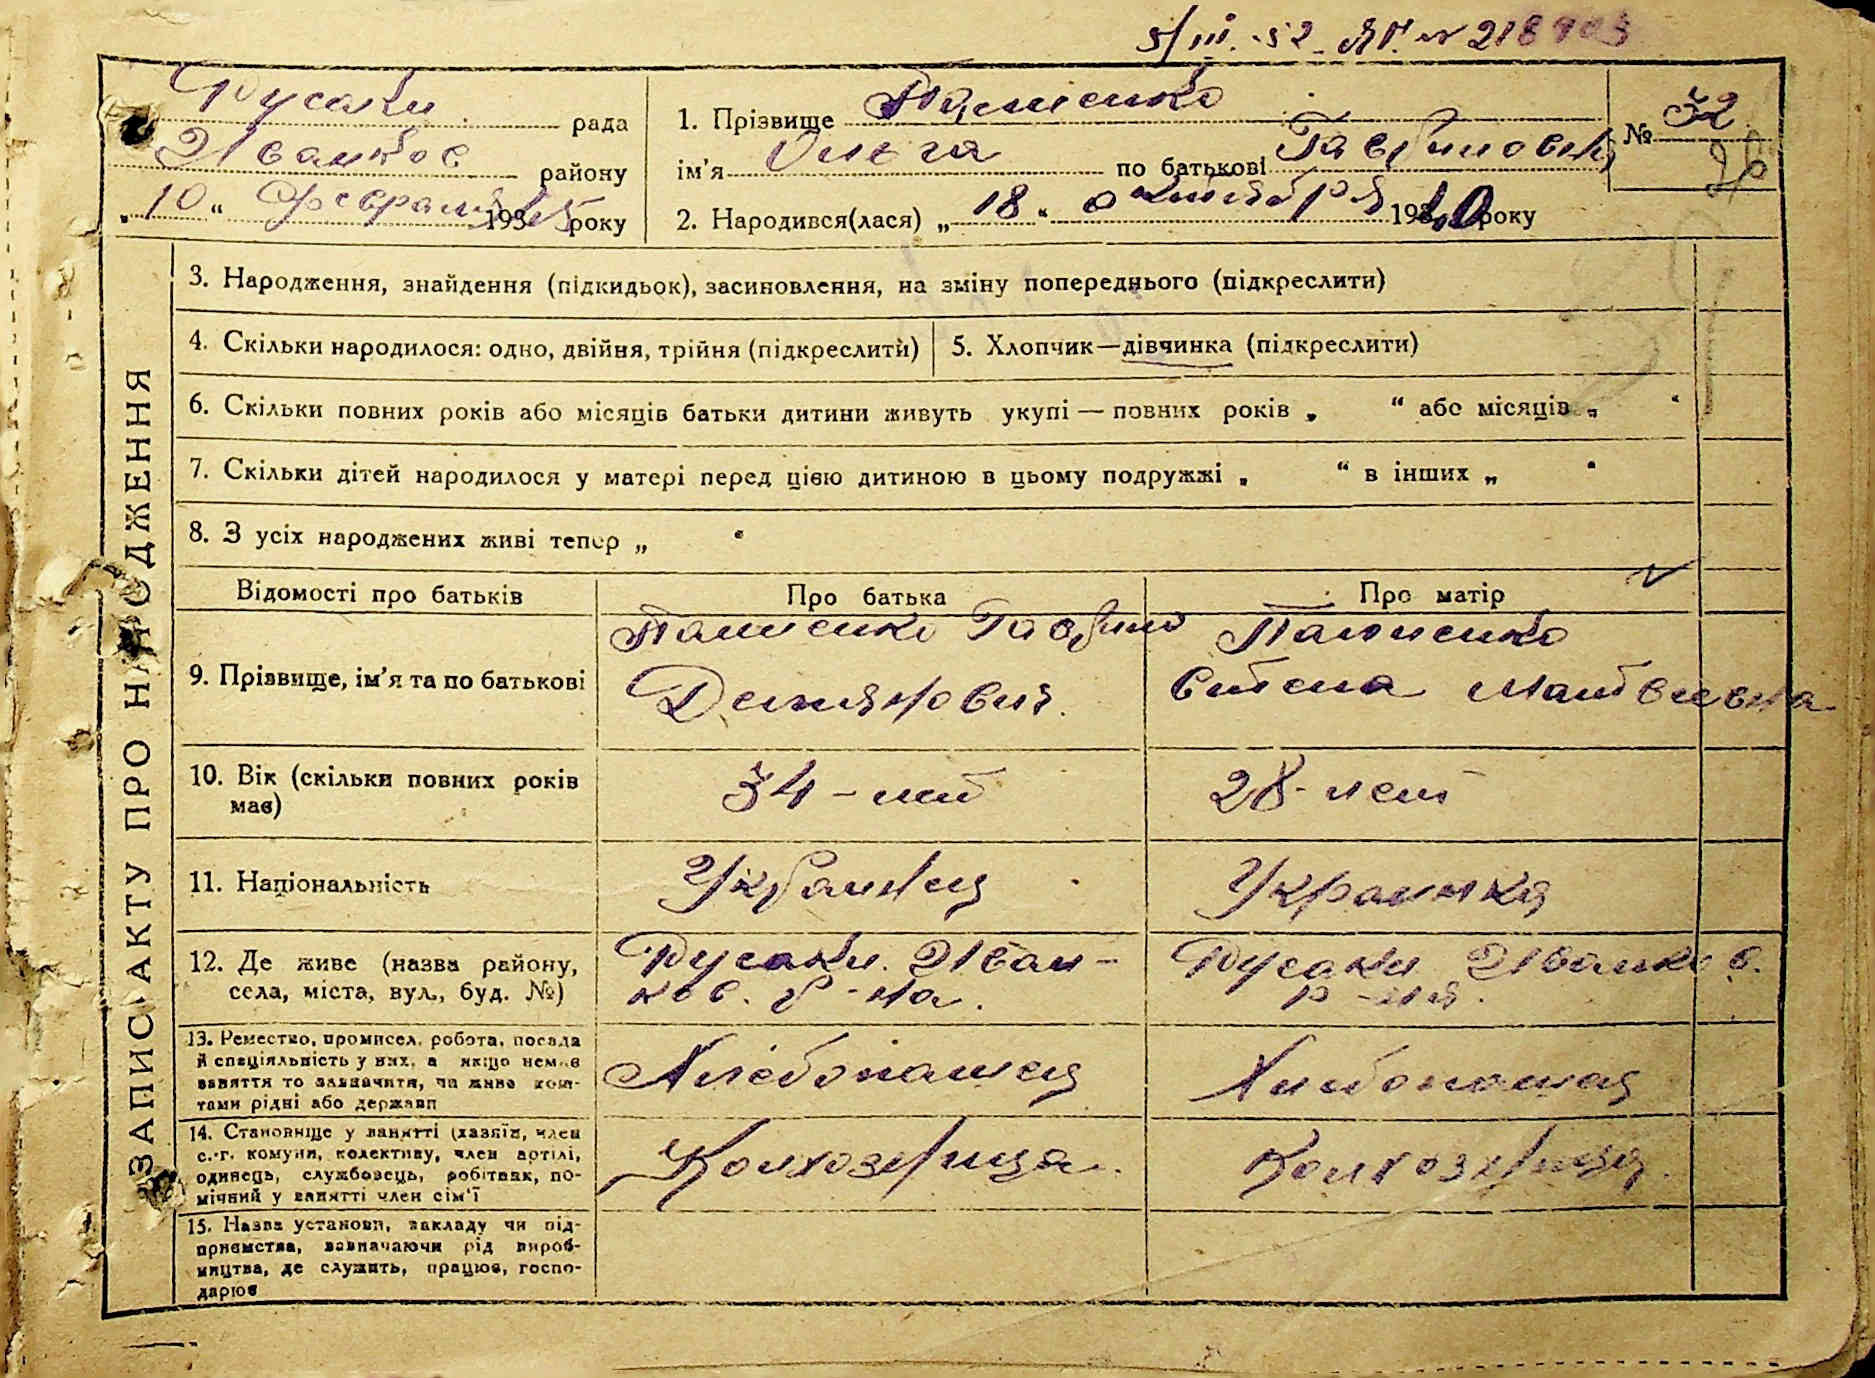 5/III.-52
Русаки рада
Иванков району
„10“ Февраля 1945 року
1. Прізвище
ім'я Ольга по батькові Гавриловн
2. Народився(лася) „18“ октября 1940 року
№ 32
26
ЗАПИС АКТУ ПРО НАРОДЖЕННЯ
3. Народження, знайдення (підкидьок), засиновлення, на зміну попереднього (підкреслити)
4. Скільки народилося: одно, двійня, трійня (підкреслити)
5. Хлопчик—дівчинка (підкреслити)
6. Скільки повних років або місяців батьки дитини живуть укупі — повних років „ “ або місяців „ “
7. Скільки дітей народилося у матері перед цією дитиною в цьому подружжі „ “ в інших „ “
8. З усіх народжених живі тепер „ “
Відомості про батьків
Про батька
Про матір
9. Прізвище, ім'я та по батькові
Гаврило
Демянович.
Матвеевна
10. Вік (скільки повних років
має)
34 - лет
28 - лет
11. Національність
Украинец
Украинка
12. Де живе (назва району,
села, міста, вул., буд. №)
Русаки. Иван-
ков. р-на.
Русаки Иванков.
р-на.
13. Ремество, промисел, робота, посада
й спаціяльність у них, а якщо немає
заняття то зазначити, чи живе кош-
тами рідні або держави
Хлебопашец
Хлебопашец
14. Становище у занятті (хазяїн, член
с.-г. комуни, колективу, член артілі,
одинець, службовець, робітник, по-
мічний у занятті член сім'ї
Колхозница.
Колхозница.
15. Назва установи, закладу чи під-
приємства, зазначаючи рід вироб-
ництва, де служить, працює, госпо-
дарює